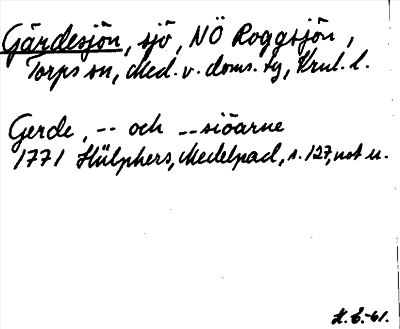 Gärdesjön, sjö, NÖ Roggsjön,
Torps sn, Med. v. doms. tg, Krnl. l.
Gerde, -- och --siöarne
1771 Hülphers, Medelpad, s. 127, not u.
H. E. -61.